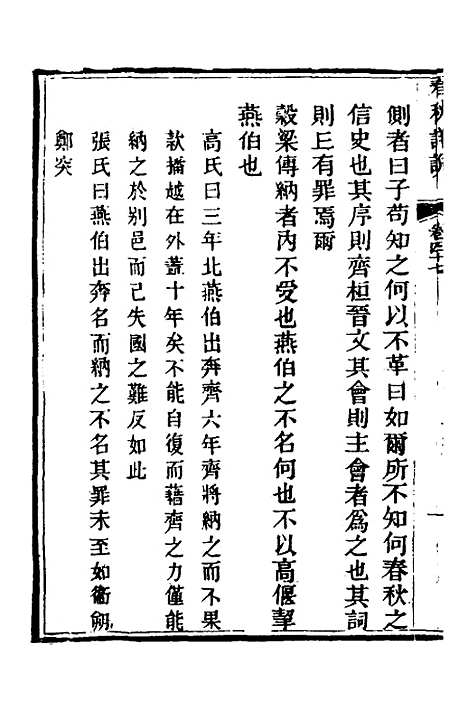 春秋詳說
卷四十七
側者曰子苟知之何以不革曰如爾所不知何春秋之
信史也其序則齊桓晉文其會則主會者為之也其詞
則㠪有罪焉爾
穀梁傳納者內不受也燕伯之不名何也不以高偃挈
燕伯也
高氏曰三年北燕伯出奔齊六年齊將納之而不果
款播越在外蓋十年矣不能自復而藉齊之力僅能
納之於別邑而已失國之難反如此
張氏曰燕伯出奔名而納之不名其罪未至如衛朔
鄭突